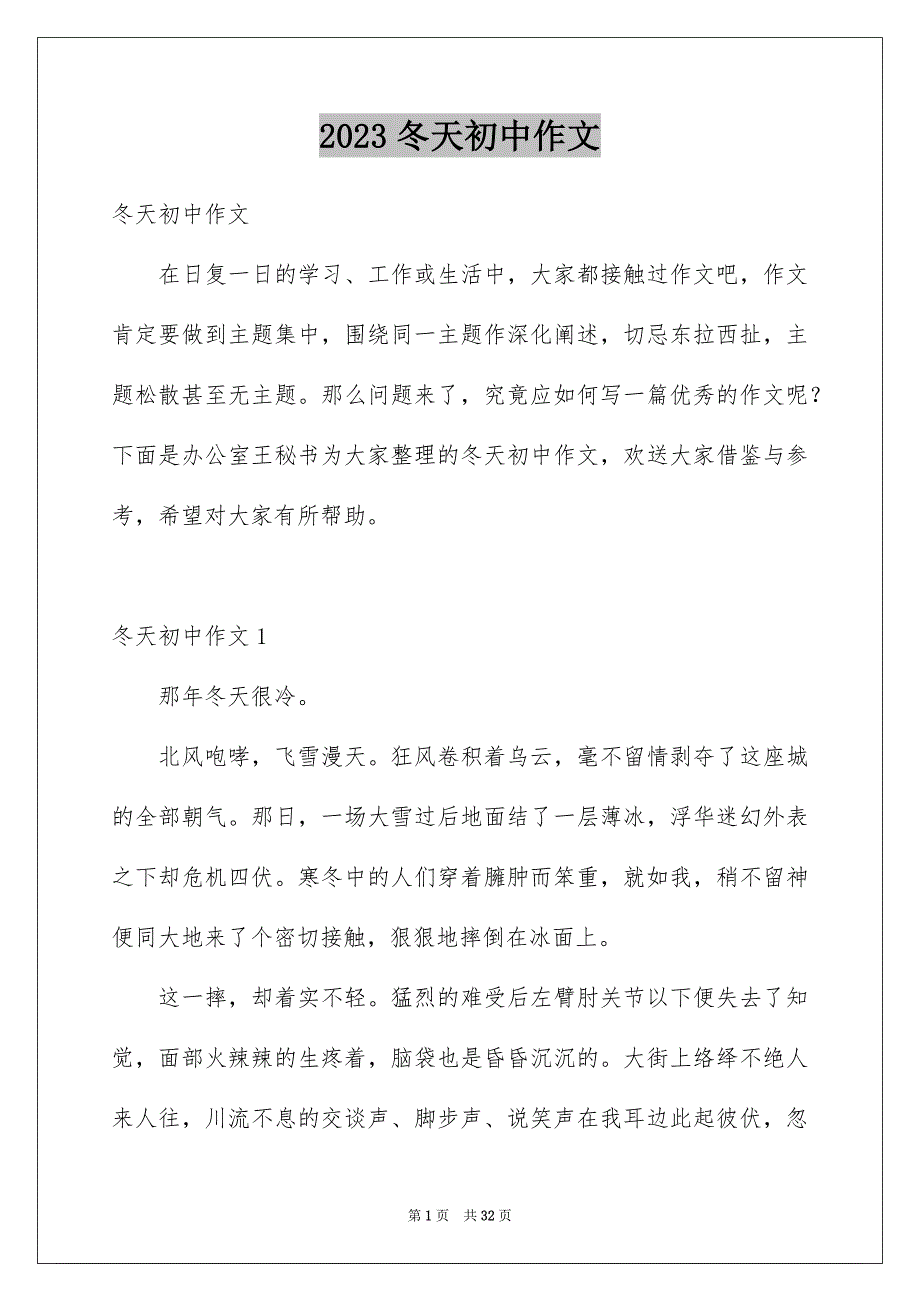 2023冬天初中作文
冬天初中作文
在日复一日的学习、工作或生活中，大家都接触过作文吧，作文
肯定要做到主题集中，围绕同一主题作深化阐述，切忌东拉西扯，主
题松散甚至无主题。那么问题来了，究竟应如何写一篇优秀的作文呢？
下面是办公室王秘书为大家整理的冬天初中作文，欢送大家借鉴与参
考，希望对大家有所帮助。
冬天初中作文1
那年冬天很冷。
北风咆哮，飞雪漫天。狂风卷积着乌云，毫不留情剥夺了这座城
的全部朝气。那日，一场大雪过后地面结了一层薄冰，浮华迷幻外表
之下却危机四伏。寒冬中的人们穿着臃肿而笨重，就如我，稍不留神
便同大地来了个密切接触，狠狠地摔倒在冰面上。
这一摔，却着实不轻。猛烈的难受后左臂肘关节以下便失去了知
觉，面部火辣辣的生疼着，脑袋也是昏昏沉沉的。大街上络绎不绝人
来人往，川流不息的交谈声、脚步声、说笑声在我耳边此起彼伏，忽
第1页 共32页